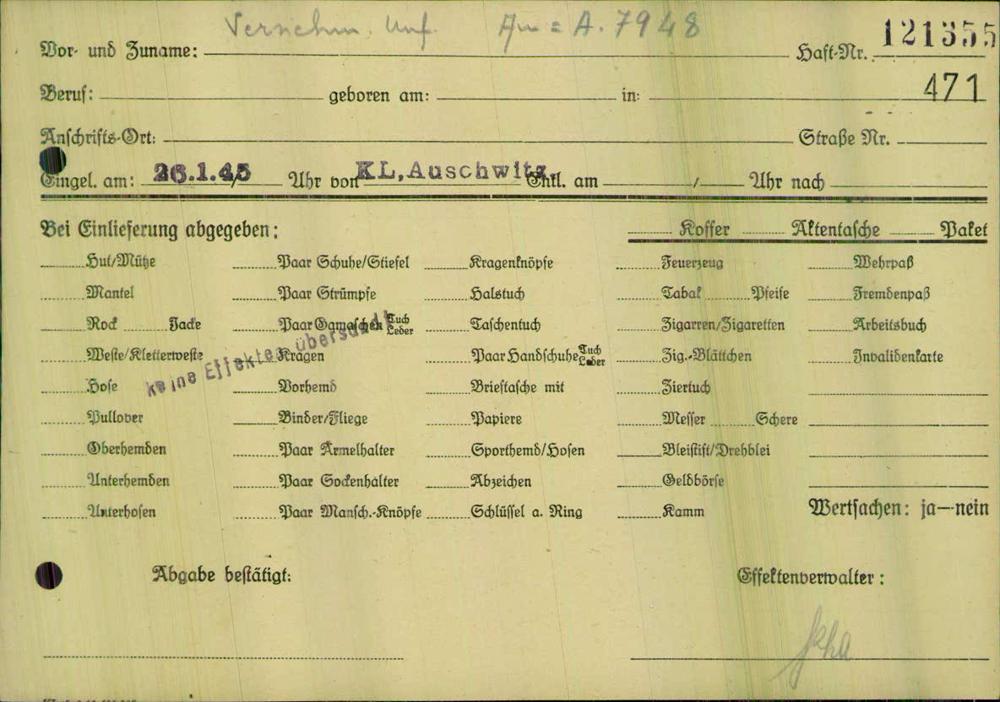 Vernehm. Unf. Au = A. 7948
Vor- und Zuname: Haft-Nr. 121355
Beruf: geboren am: in: 471
Anschrifts-Ort: Straße Nr.
Eingel. am: 26.1.45 / Uhr von KL, Auschwitz. Entl. am / Uhr nach
Bei Einlieferung abgegeben: Koffer Aktentasche Paket
Hut/Mütze Paar Schuhe/Stiefel Kragenknöpfe Feuerzeug Wehrpaß
Mantel Paar Strümpfe Halstuch Tabak Pfeife Fremdenpaß
Rock Jacke Paar Gamaschen Tuch Leder Taschentuch Zigarren/Zigaretten Arbeitsbuch
Weste/Kletterweste Kragen Paar Handschuhe Tuch Leder Zig.-Blättchen Invalidenkarte
keine Effekten übersandt
Hose Vorhemd Brieftasche mit Ziertuch
Pullover Binder/Fliege Papiere Messer Schere
Oberhemden Paar Ärmelhalter Sporthemd/Hosen Bleistift/Drehblei
Unterhemden Paar Sockenhalter Abzeichen Geldbörse
Unterhosen Paar Mansch.-Knöpfe Schlüssel a. Ring Kamm Wertsachen: ja—nein
Abgabe bestätigt: Effektenverwalter: